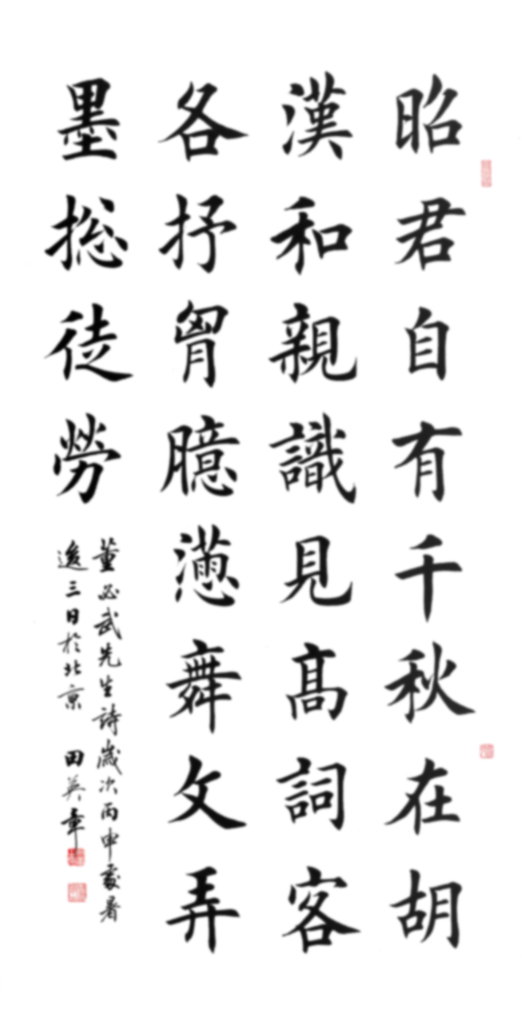 昭君自有千秋在胡
漢和親識見髙詞客
各抒胷臆懣舞文弄
墨捴徒勞
董必武先生詩歲次丙申處暑
後三日於北京 田英章